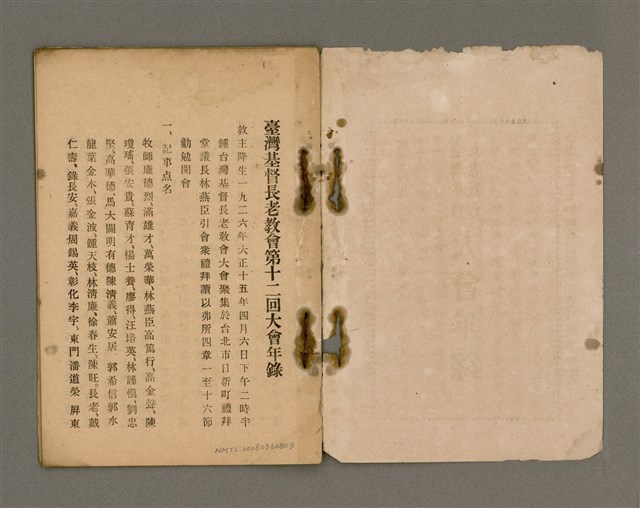 臺灣基督長老敎會第十二回大會年錄
救主降生一九二六年大正十五年四月六日下午二時半
鍾台灣基督長老敎會大會聚集於台北市日新町禮拜
堂議長林燕臣引會衆禮拜讀以弗所四章一至十六節
勸勉開會
一、記事点名
牧師廉德烈、滿雄才、萬榮華、林燕臣、高篤行、高金聲、陳
瓊瑤、張安貴、蘇育才、楊士養、廖得、汪培英、林謹愼、劉忠
堅、高華德、馬大闢、明有德、陳淸義、蕭安居、郭希信、郭水
龍、葉金木、張金波、鍾天枝、林淸廉、徐春生、陳旺、長老、戴
仁壽、錄長安、嘉義周錫英、彰化李宇、東門潘道榮、屏東
NMTL 20080360803